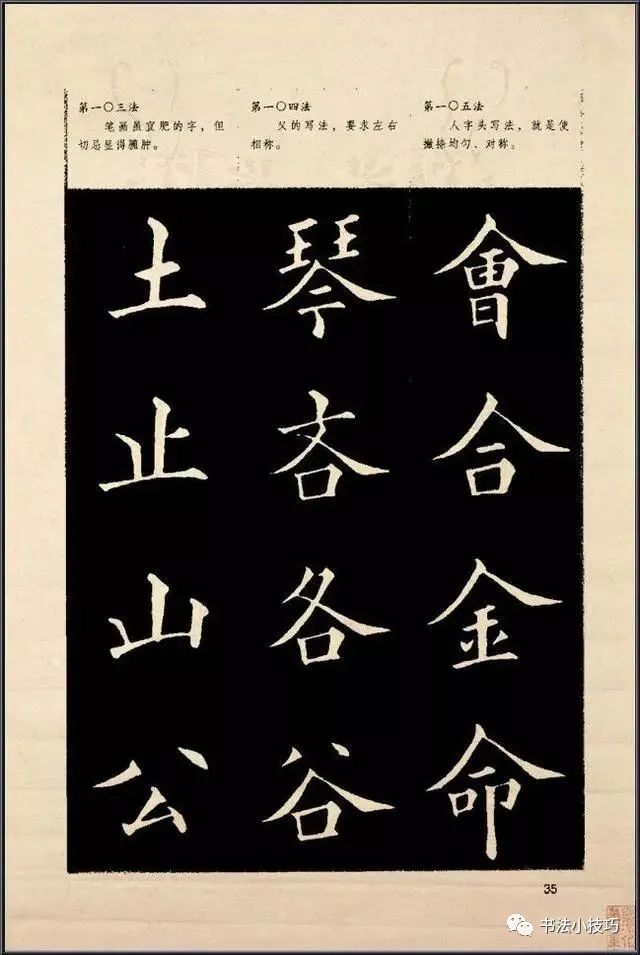 第一〇三法
笔画虽宜肥的字，但
切忌显得臃肿。
第一〇四法
攵的写法，要求左右
相称。
第一〇五法
人字头写法，就是使
撇捺均匀、对称。
會合金命
琴吝各谷
土止山公
35
书法小技巧